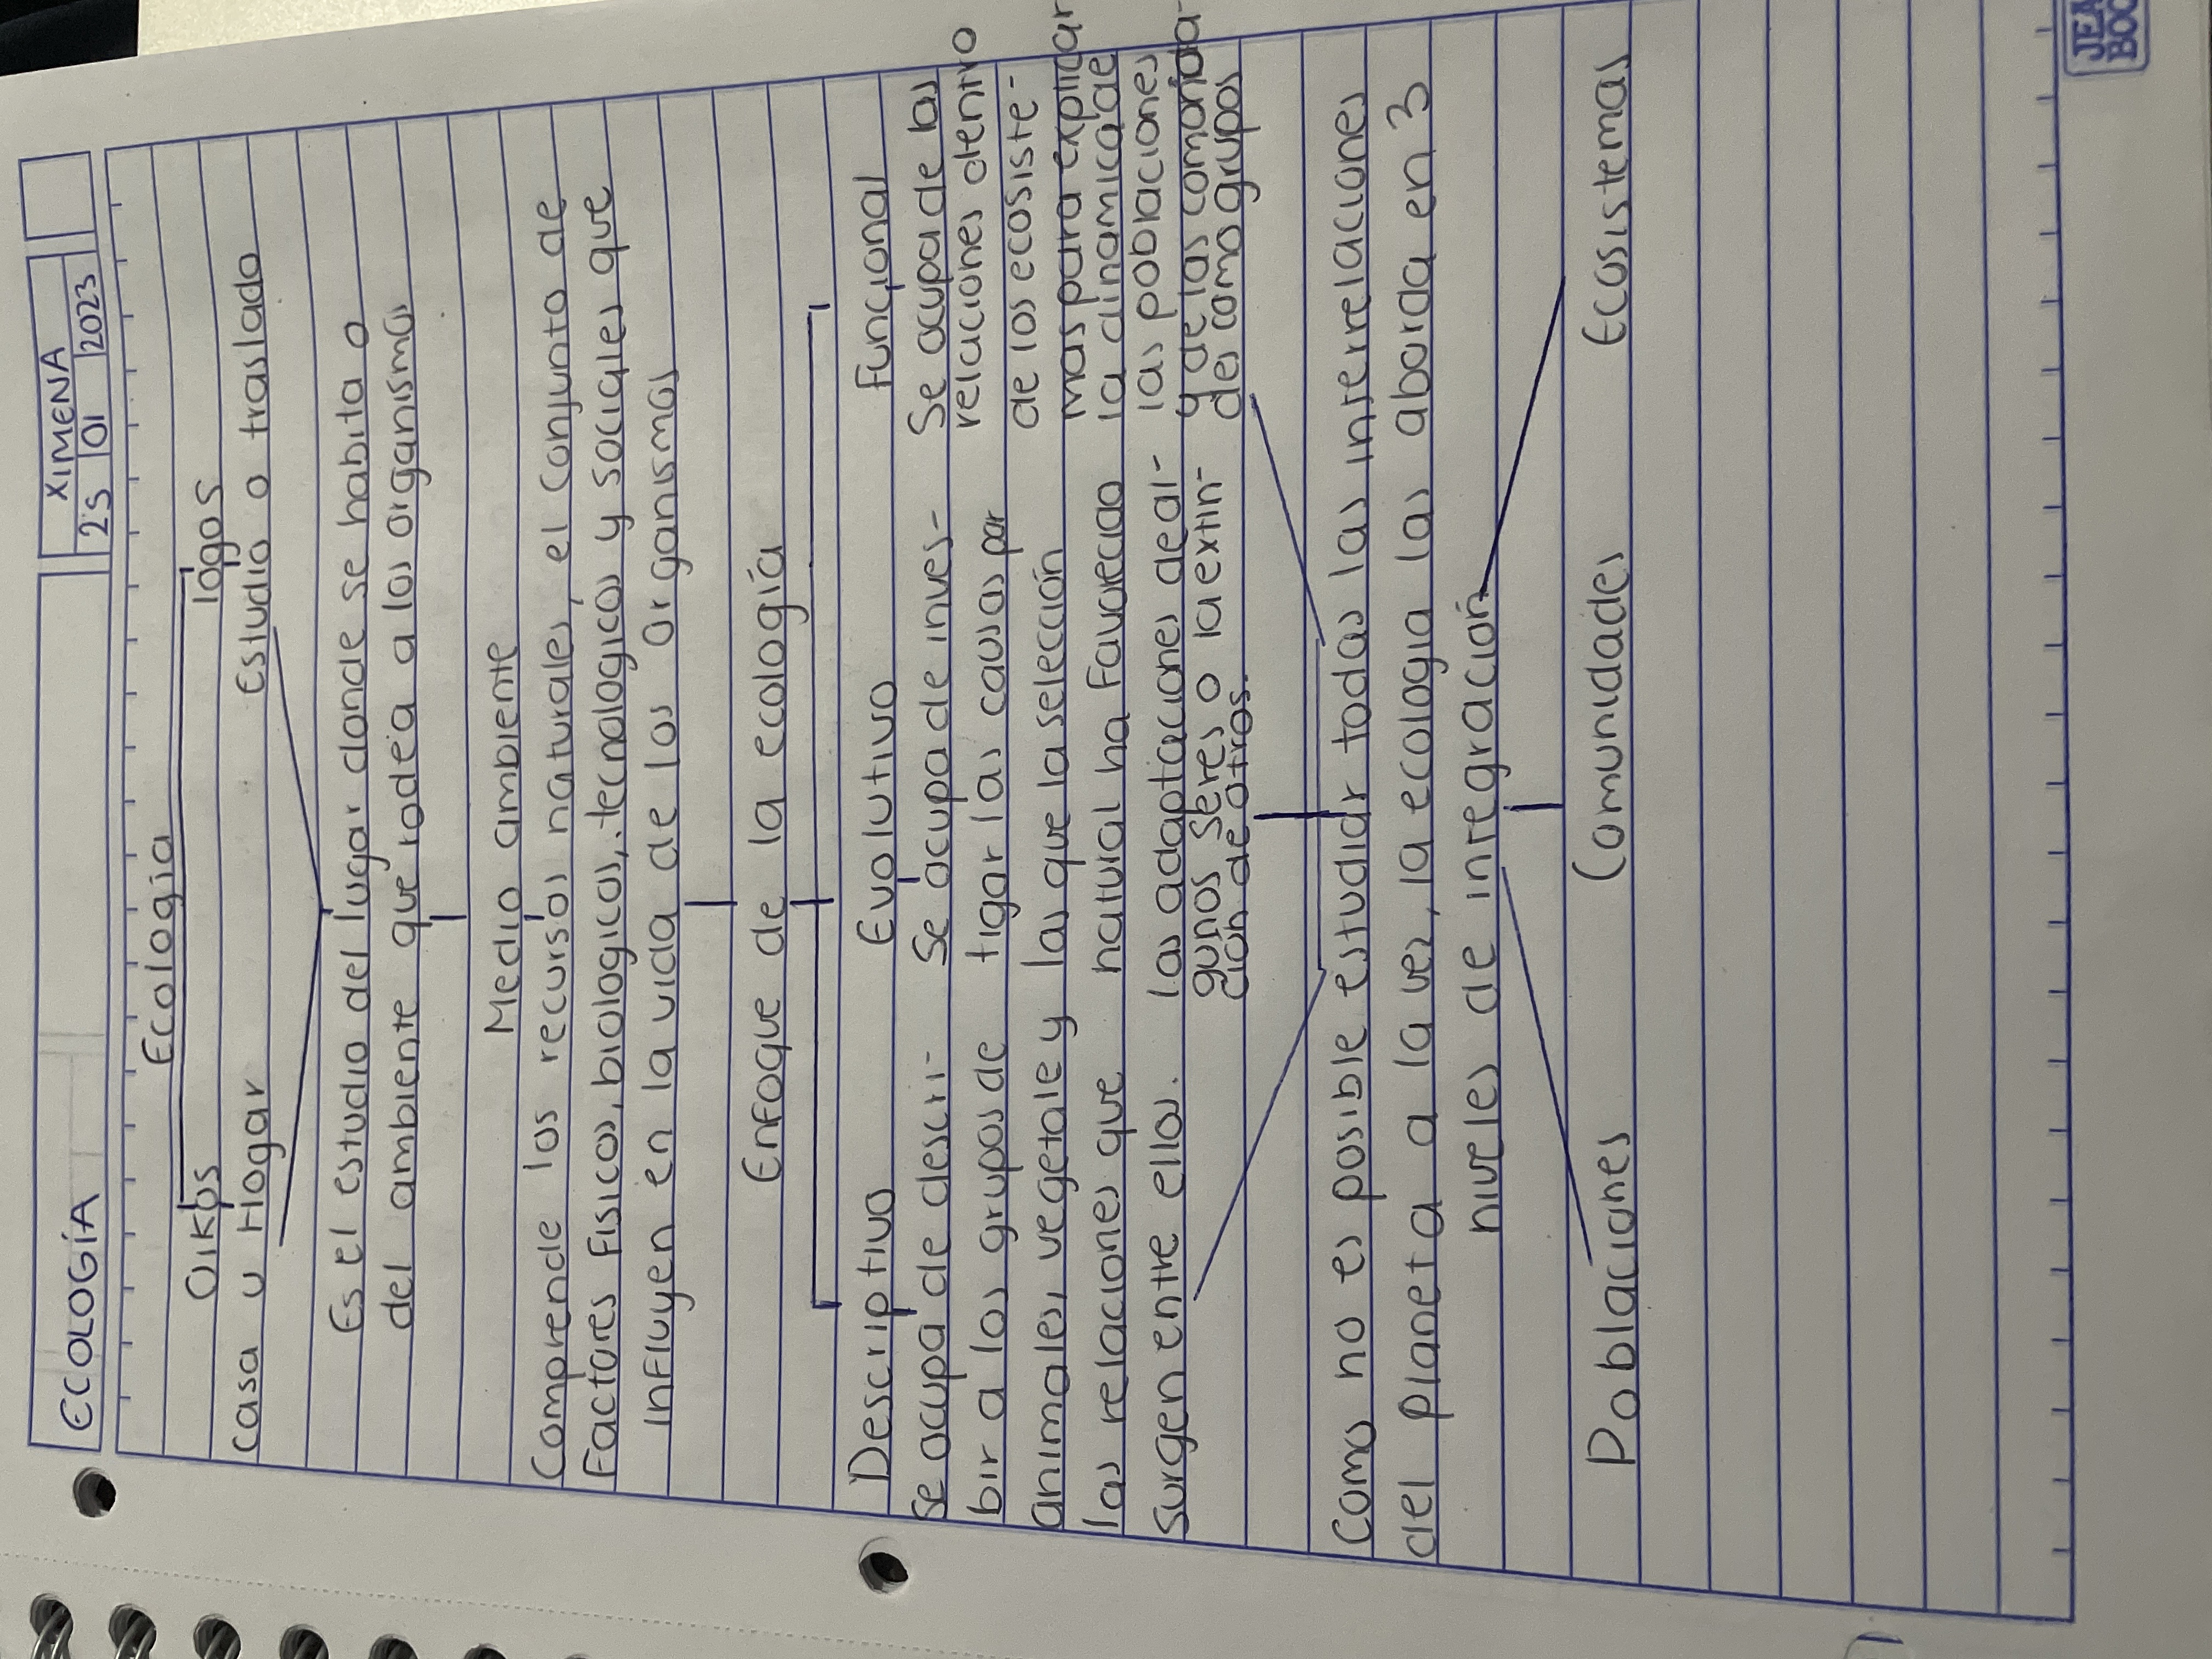 ECOLOGÍA
XIMENA
25 01 2023
Ecologia
Oikos logos
Casa u Hogar Estudio o traslado
Es el estudio del lugar donde se habita o
del ambiente que rodea a los organismos
Medio ambiente
Comprende los recursos naturales, el conjunto de
Factores Fisicos, biologicos, tecnologicos y sociales que
influyen en la vida de los organismos
Enfoque de la ecología
Descriptivo
Se ocupa de descri-
bir a los grupos de
animales, vegetales y
las relaciones que
Surgen entre ellos.
Evolutivo
Se ocupa de inves-
tigar las causas por
las que la selección
natural ha Favorecido
las adaptaciones de al-
gunos seres o la extin-
ción de otros.
Funcional
Se ocupa de las
relaciones dentro
de los ecosiste-
mas para explicar
la dinamica de
las poblaciones
y de las comunida-
des como grupos
Como no es posible estudiar todas las interrelaciones
del planeta a la vez, la ecologia las aborda en 3
niveles de integración
Poblaciones Comunidades Ecosistemas
JEA
BOO